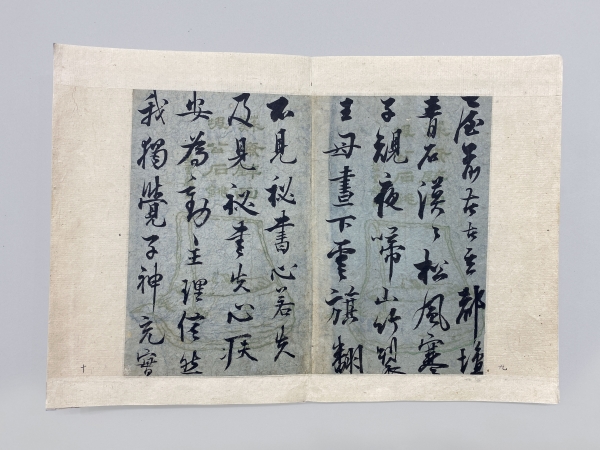 屋前太古玄都壇
青石漠〻松風寒
子規夜啼山竹裂
王母晝下雲旗翻
不見秘書心若失
及見秘書失心疾
安為動主理信然
我獨覺子神充實
九
十